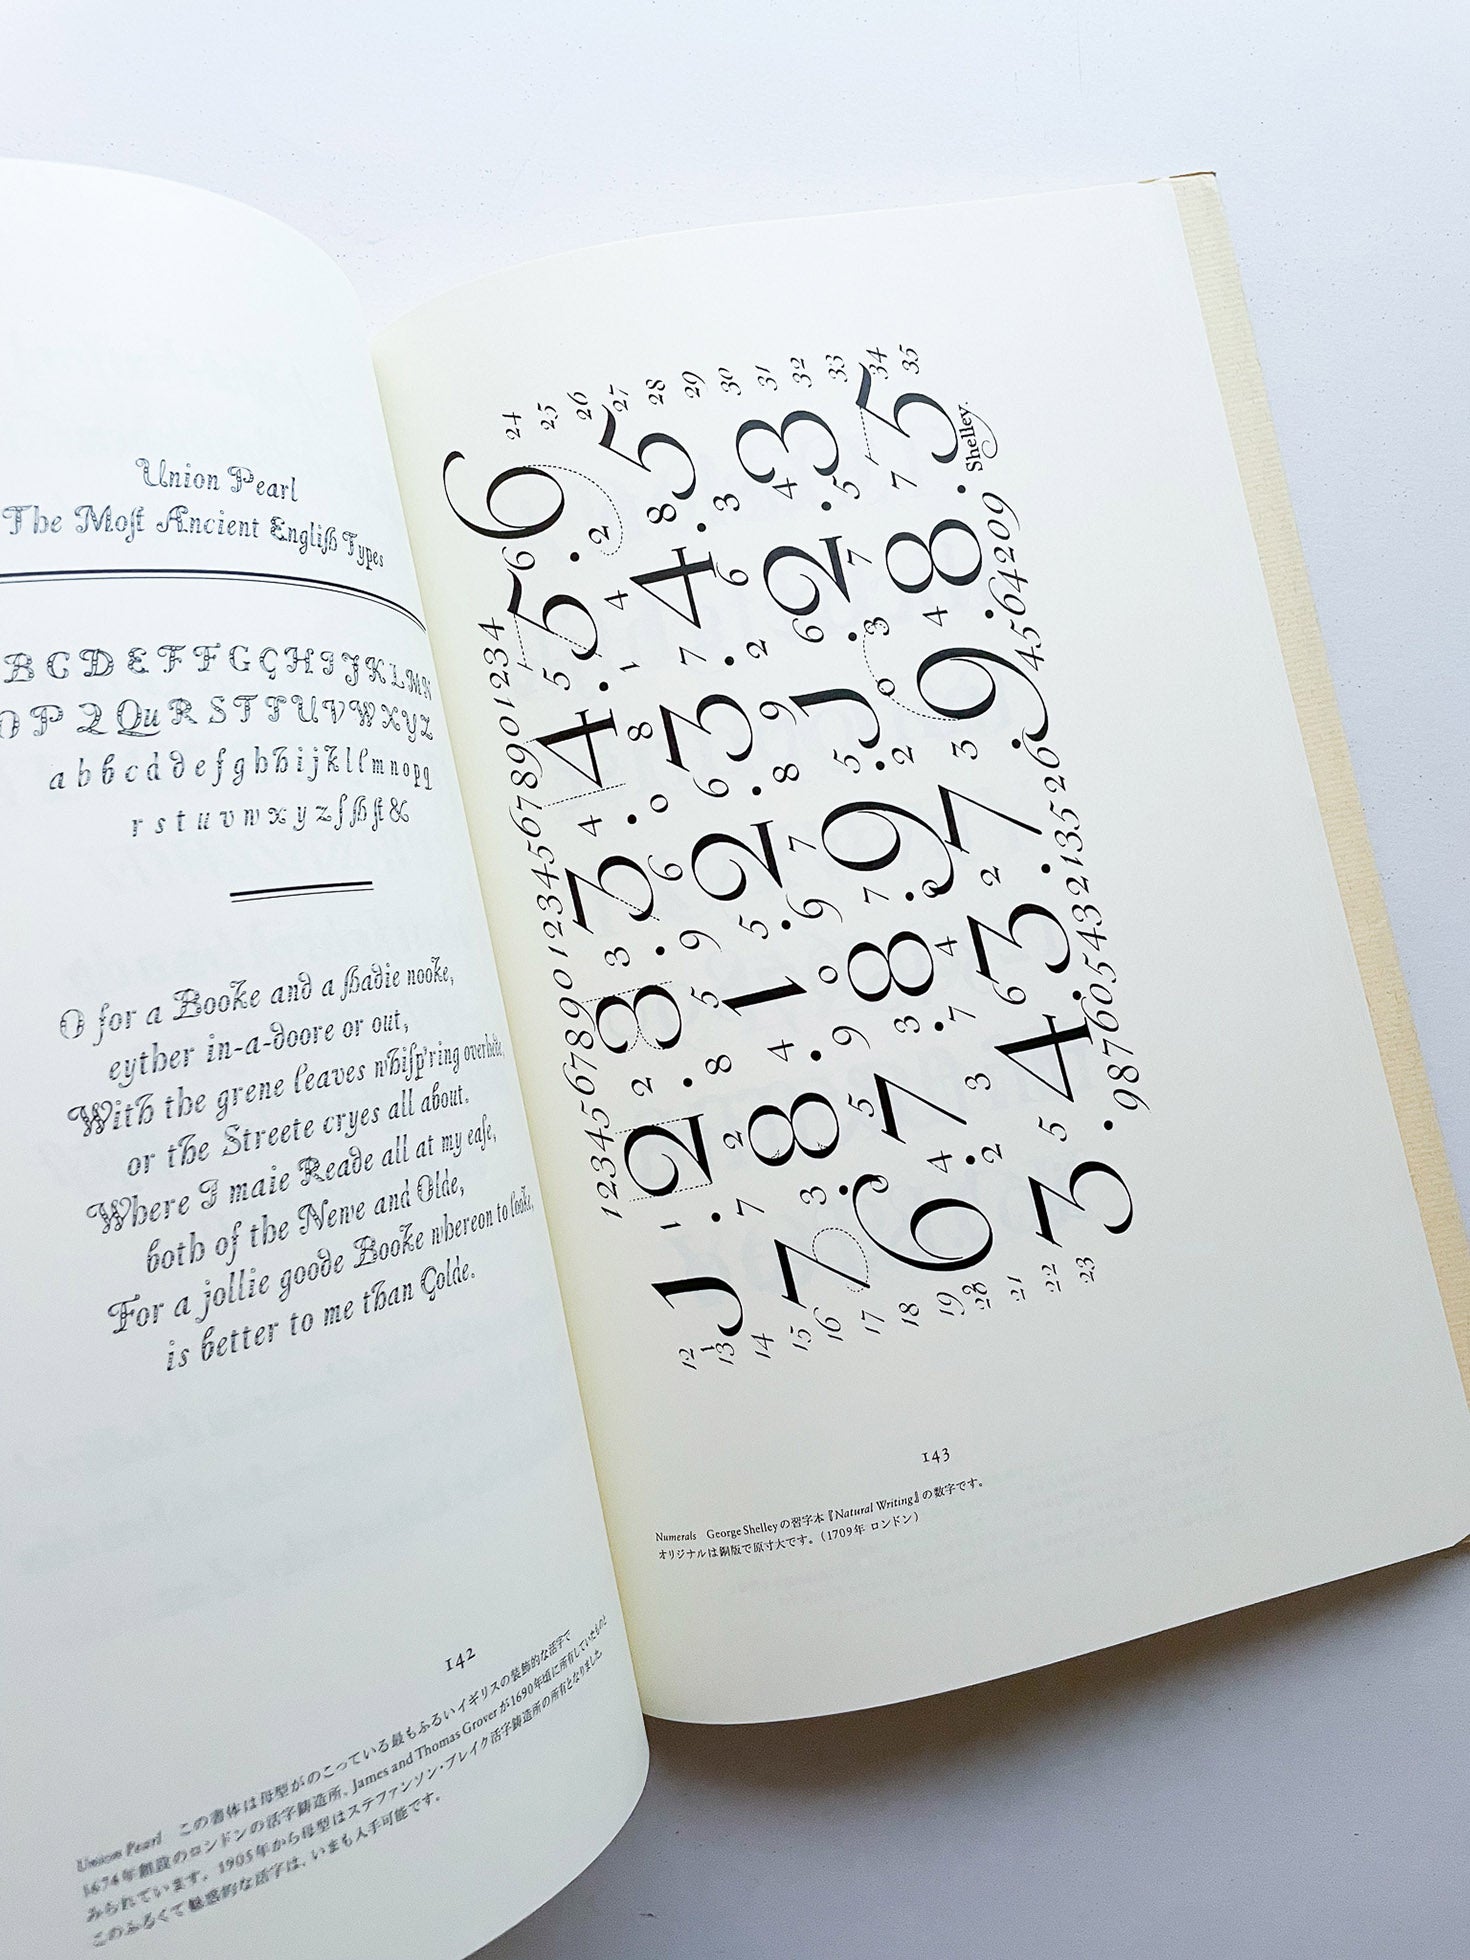 Union Pearl
The Moſt Ancient Engliſh Types
B C D E F F G Ç H I J K L M N
O P Q Qu R S T T U V W X Y Z
a b b c d d e f g h h i j k l l m n o p q
r s t u v w x y z ſ ſh ſt &
O for a Booke and a ſhadie nooke,
eyther in-a-doore or out,
With the grene leaves whiſp'ring overhede,
or the Streete cryes all about.
Where I maie Reade all at my eaſe,
both of the Newe and Olde,
For a jollie goode Booke whereon to looke,
is better to me than Golde.
142
Union Pearl この書体は母型がのこっている最もふるいイギリスの装飾的な活字で
1674年創設のロンドンの活字鋳造所、James and Thomas Groverが1690年頃に所有していたものと
みられています。1905年から母型はステファンソン・ブレイク活字鋳造所の所有となりました。
このふるくて魅惑的な活字は、いまも入手可能です。
123456789012345678901234
J . 2 . 3 . 3 . 4 . 5 . 6
7 . 8 . 1 . 2 . 3 . 4 . 5
6 . 7 . 8 . 9 . J . 2 . 3
3 . 4 . 3 . 7 . 9 . 8 . 5
Shelley.
12
13
14
15
16
17
18
19
20
21
22
23
24
25
26
27
28
29
30
31
32
33
34
35
143
Numerals George Shelleyの習字本『Natural Writing』の数字です。
オリジナルは銅版で原寸大です。（1709年 ロンドン）